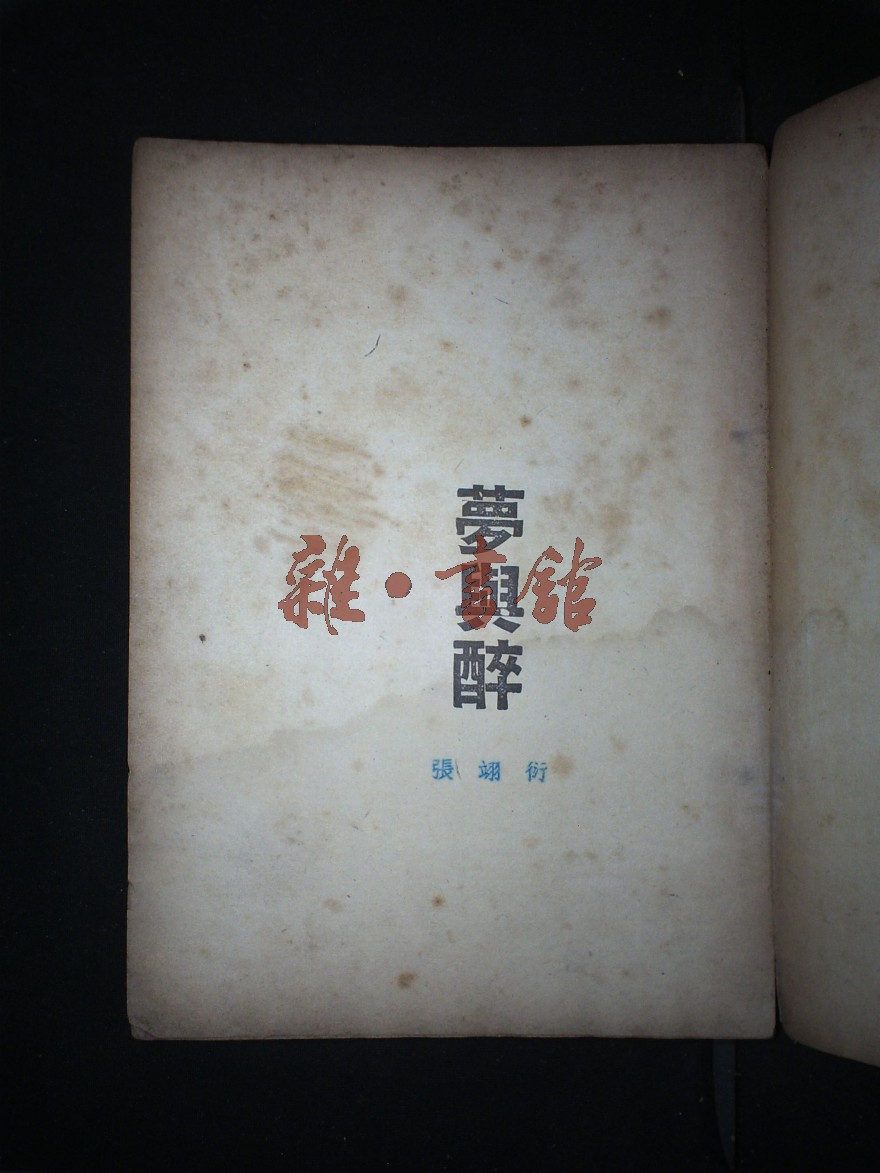 夢與醉
雜·書館
張翊衍